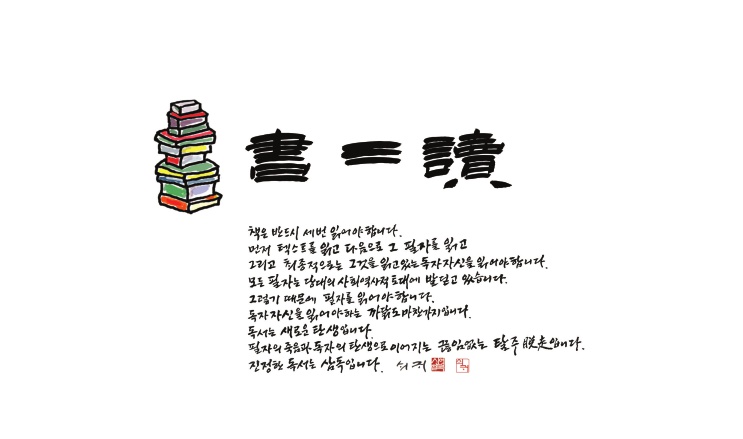 書三讀
책은 반드시 세번 읽어야 합니다.
먼저 텍스트를 읽고 다음으로 그 필자를 읽고
그리고 최종적으로는 그것을 읽고있는 독자 자신을 읽어야 합니다.
모든 필자는 당대의 사회역사적 토대에 발딛고 있습니다.
그렇기 때문에 필자를 읽어야 합니다.
독자 자신을 읽어야 하는 까닭도 마찬가지입니다.
독서는 새로운 탄생입니다.
필자의 죽음과 독자의 탄생으로 이어지는 끊임없는 탈주 脫走입니다.
진정한 독서는 삼독입니다. 쇠귀